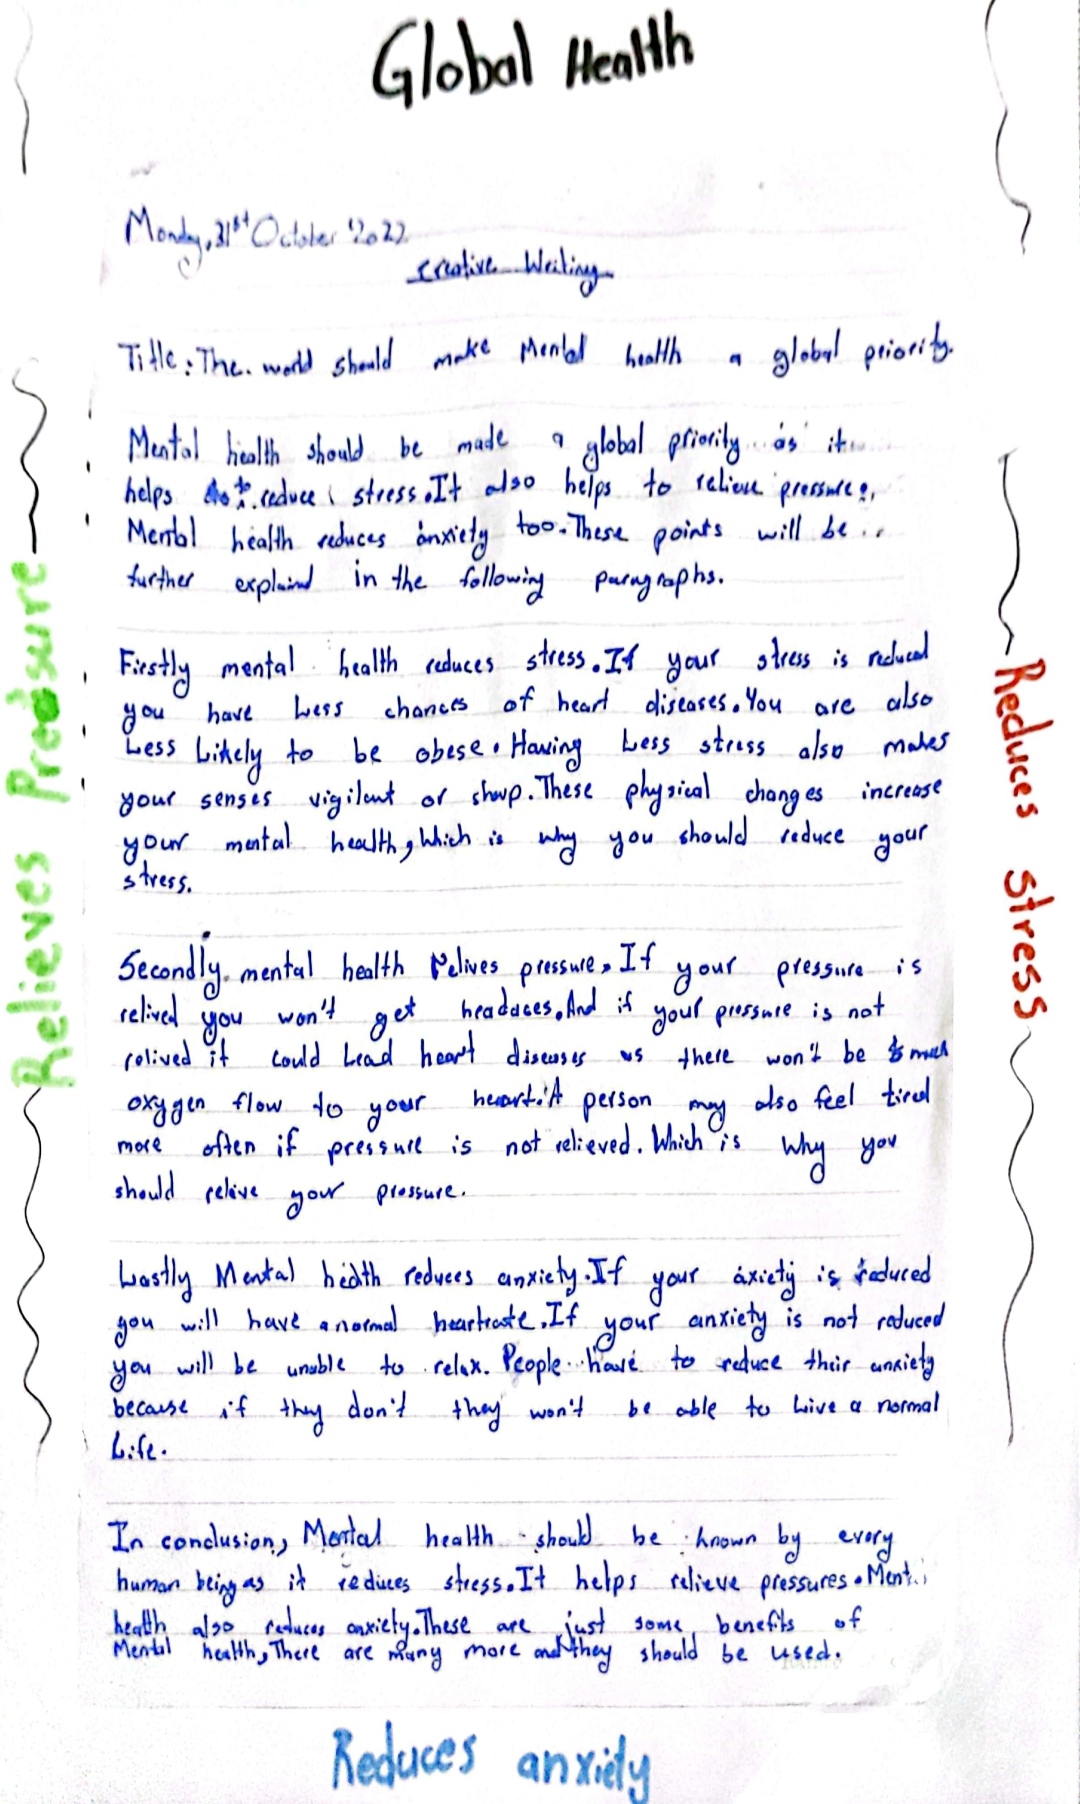 Global Health
Monday, 31st October '2022
Creative Writing
Title: The world should make Mental health a global priority.
Mental health should be made a global priority as it
helps to reduce stress. It also helps to relieve pressure,
Mental health reduces anxiety too. These points will be
further explaind in the following paragraphs.
Firstly mental health reduces stress. If your stress is reduced
you have Less chances of heart diseases. You are also
Less Likely to be obese. Having Less stress also makes
your senses vigilant or sharp. These physical changes increase
your mental health, Which is why you should reduce your
stress.
Secondly mental health relives pressure, If your pressure is
relived you won't get headaces. And if your pressure is not
relived it could Lead heart diseases as there won't be much
oxygen flow to your heart. A person may also feel tired
more often if pressure is not relieved. Which is Why you
should relive your pressure.
Lastly Mental health reduces anxiety. If your axiety is reduced
you will have a normal heartrate. If your anxiety is not reduced
you will be unable to relax. People have to reduce their anxiety
because if they don't they won't be able to Live a normal
Life.
In conclusion, Mental health should be known by every
human being as it reduces stress. It helps relieve pressures. Ment
health also reduces anxiety. These are just some benefits of
Mental health, There are many more and they should be used.
Relieves Pressure
Reduces stress
Reduces anxiety